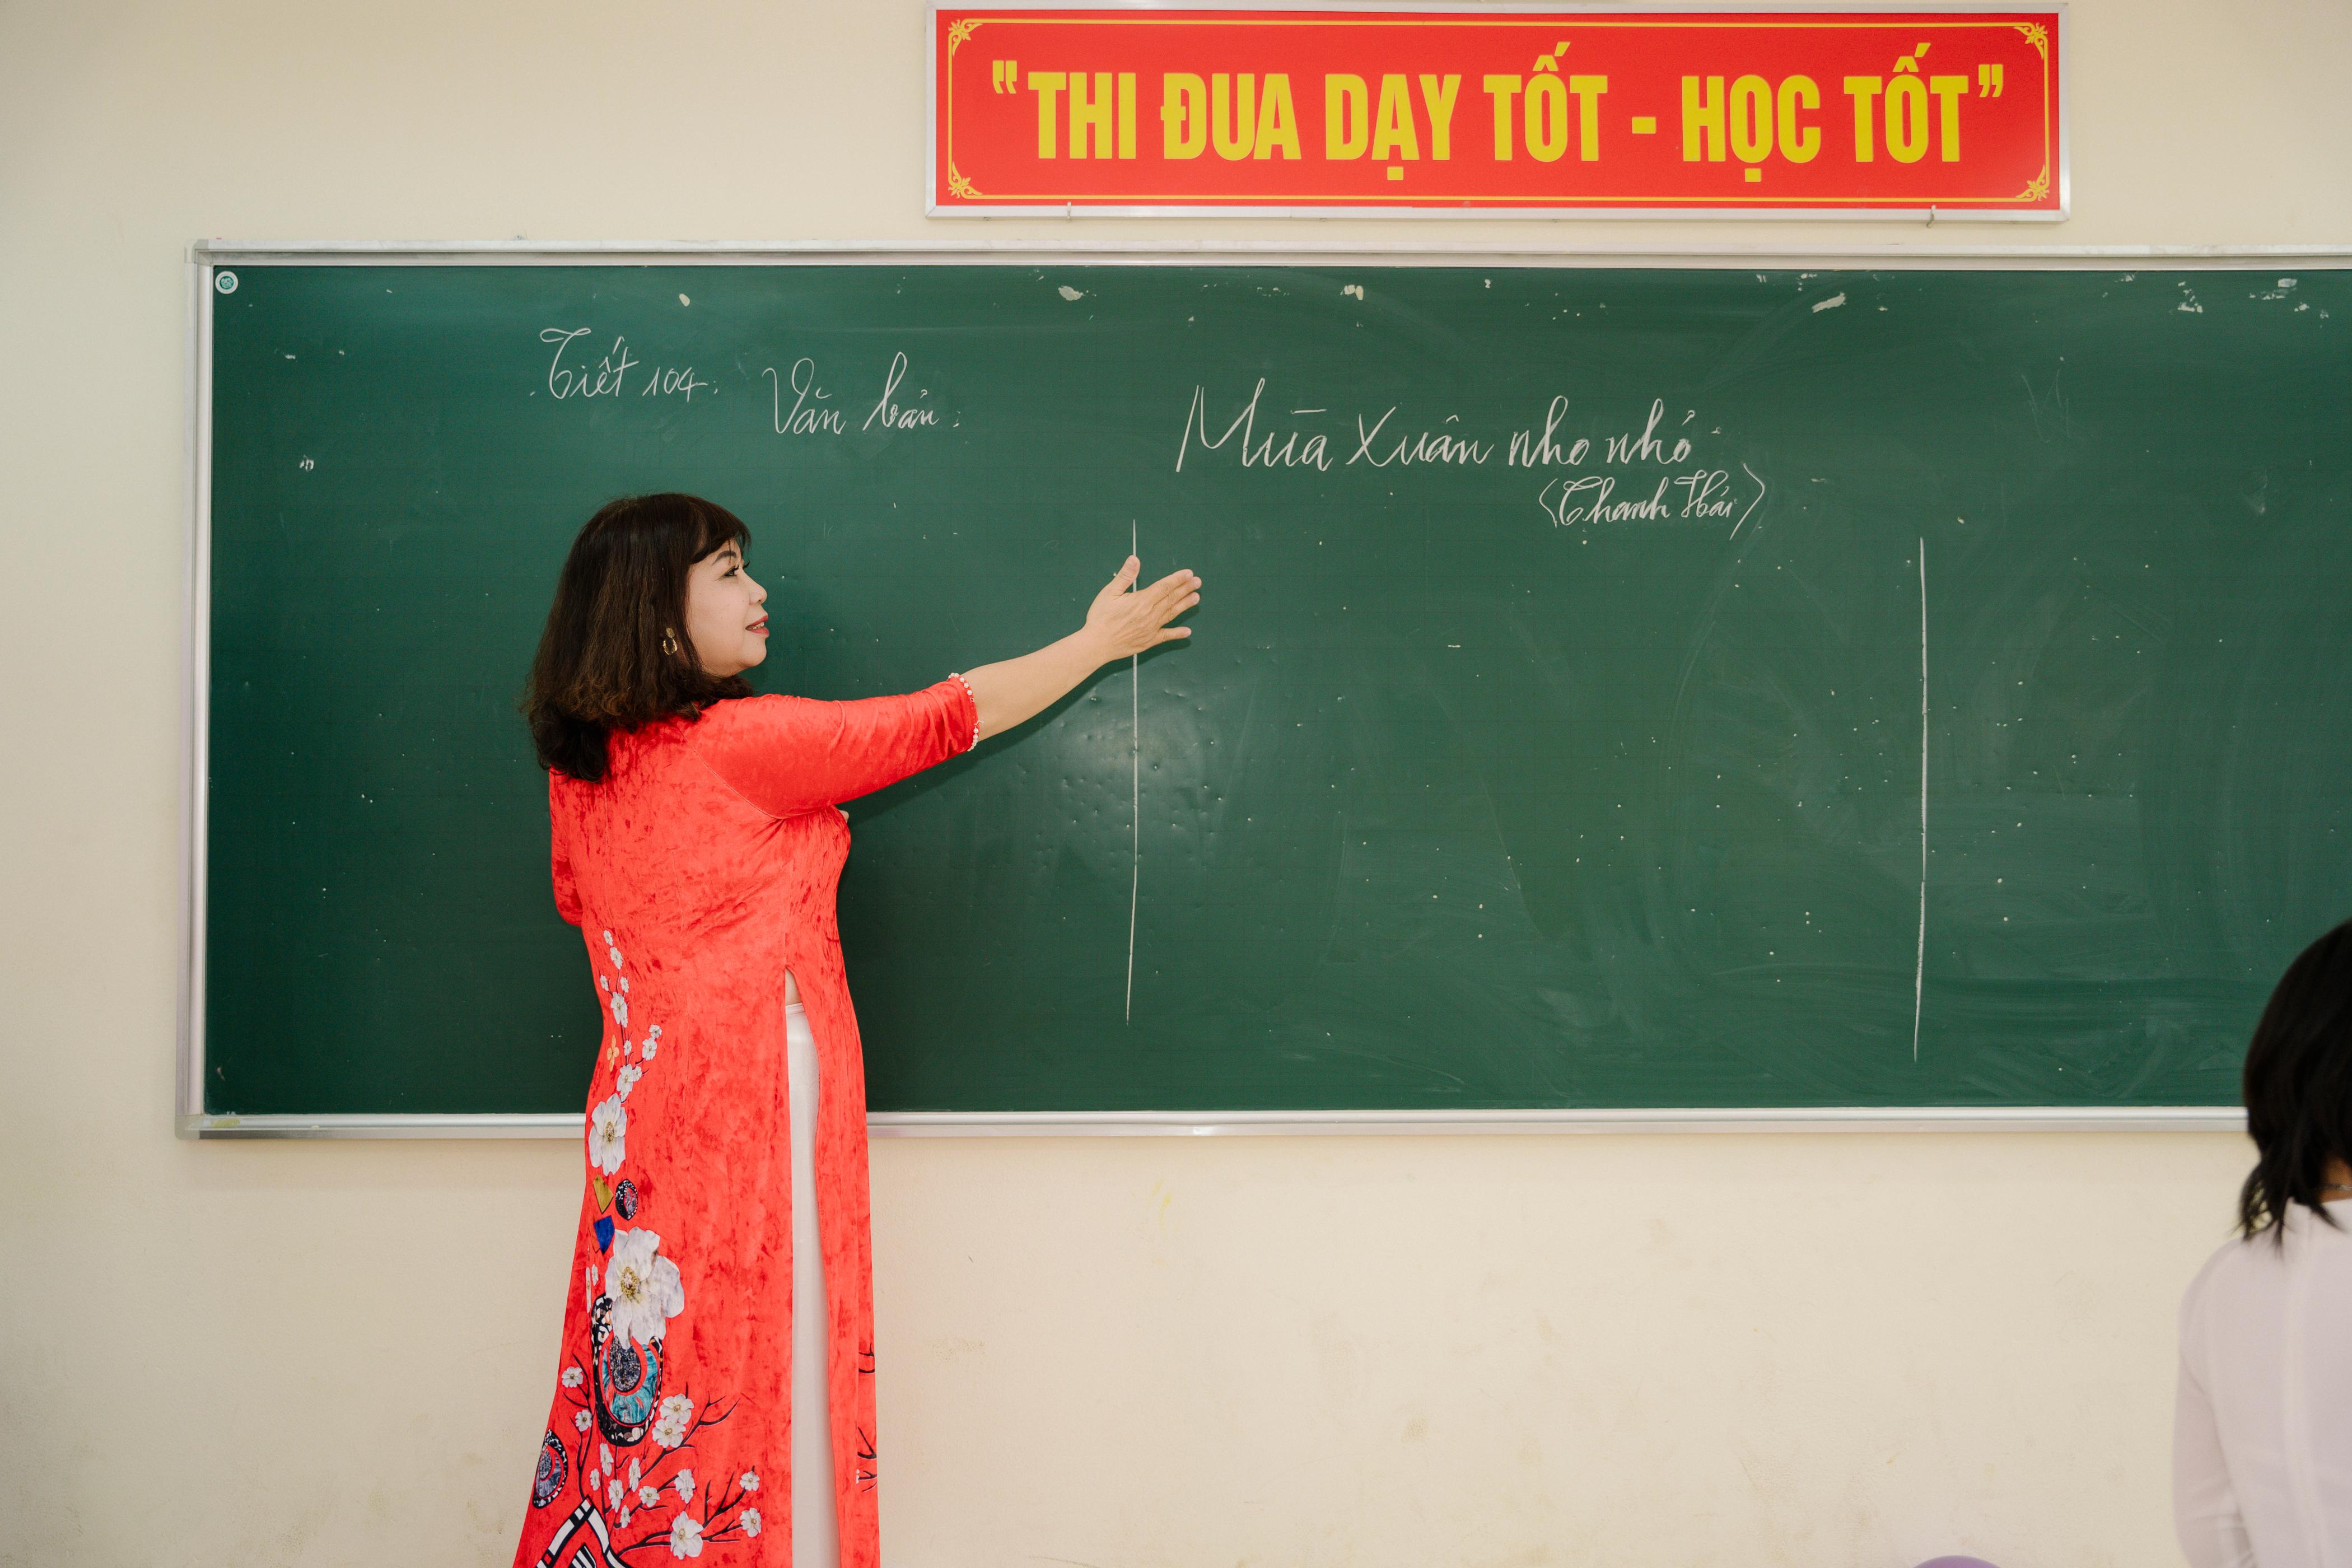 "THI ĐUA DẠY TỐT - HỌC TỐT"
Tiết 104: Văn bản:
Mùa Xuân nho nhỏ
(Thanh Hải)